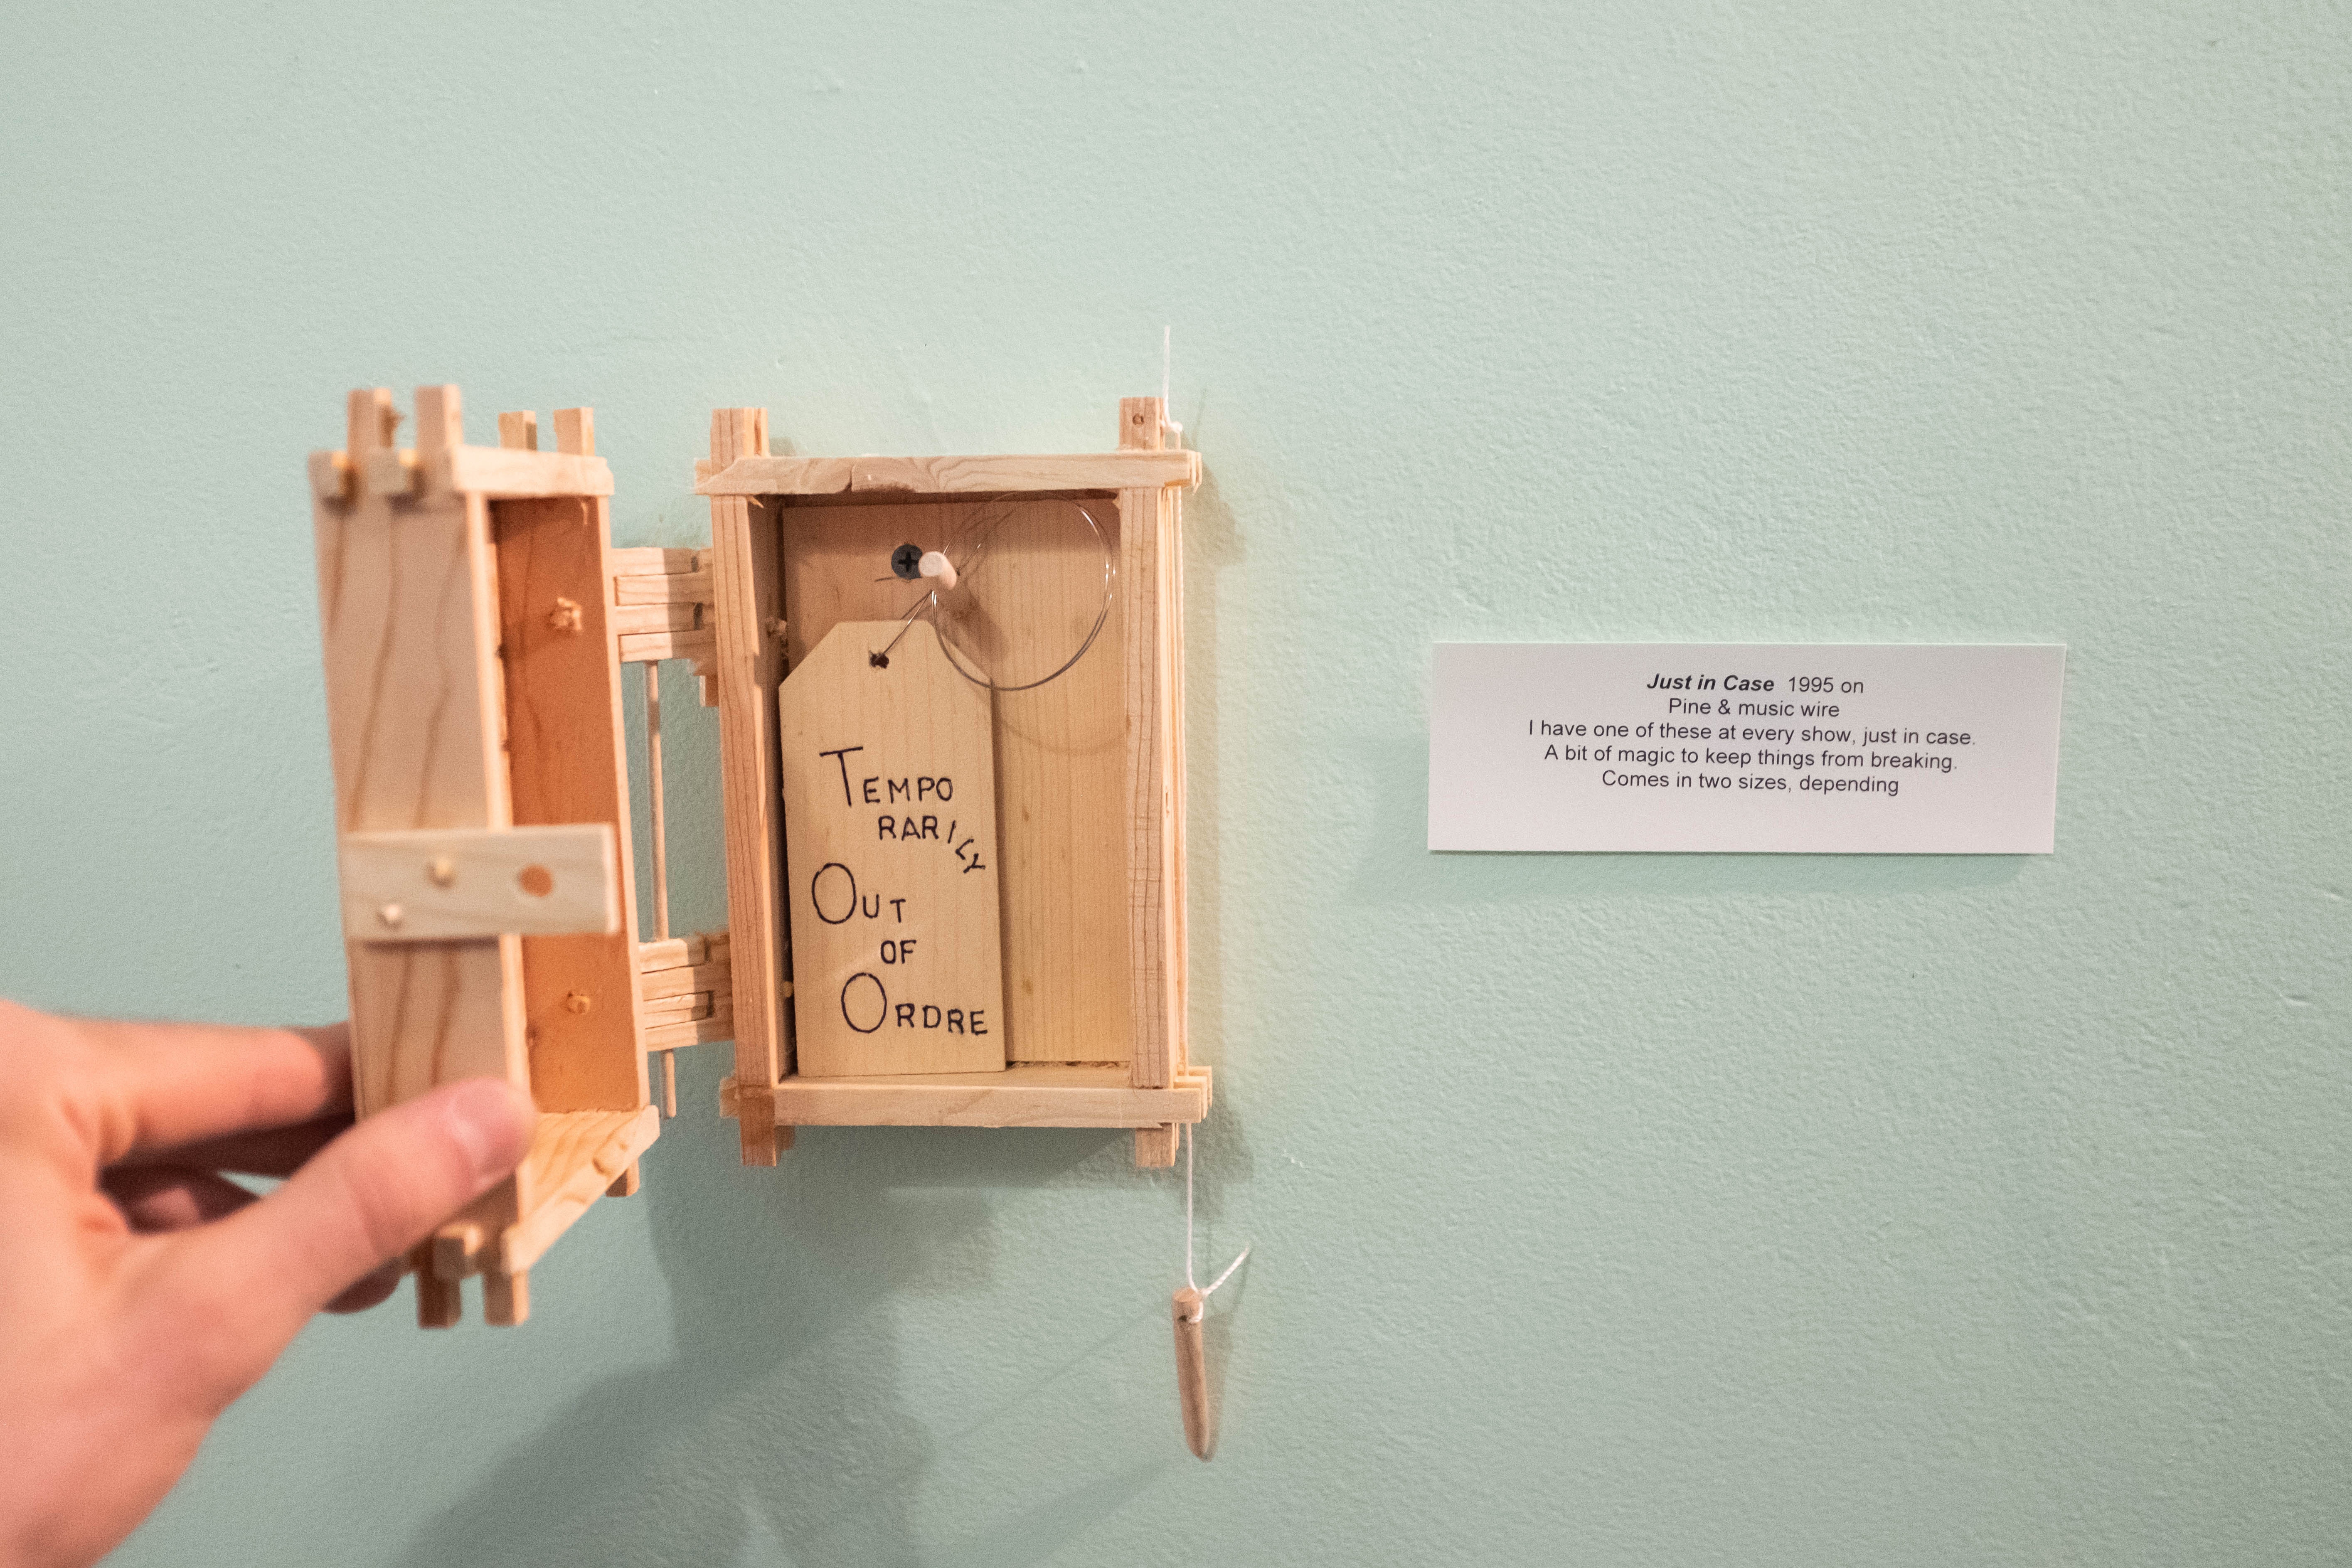 TEMPO
RARILY
OUT
OF
ORDRE
Just in Case 1995 on
Pine & music wire
I have one of these at every show, just in case.
A bit of magic to keep things from breaking.
Comes in two sizes, depending